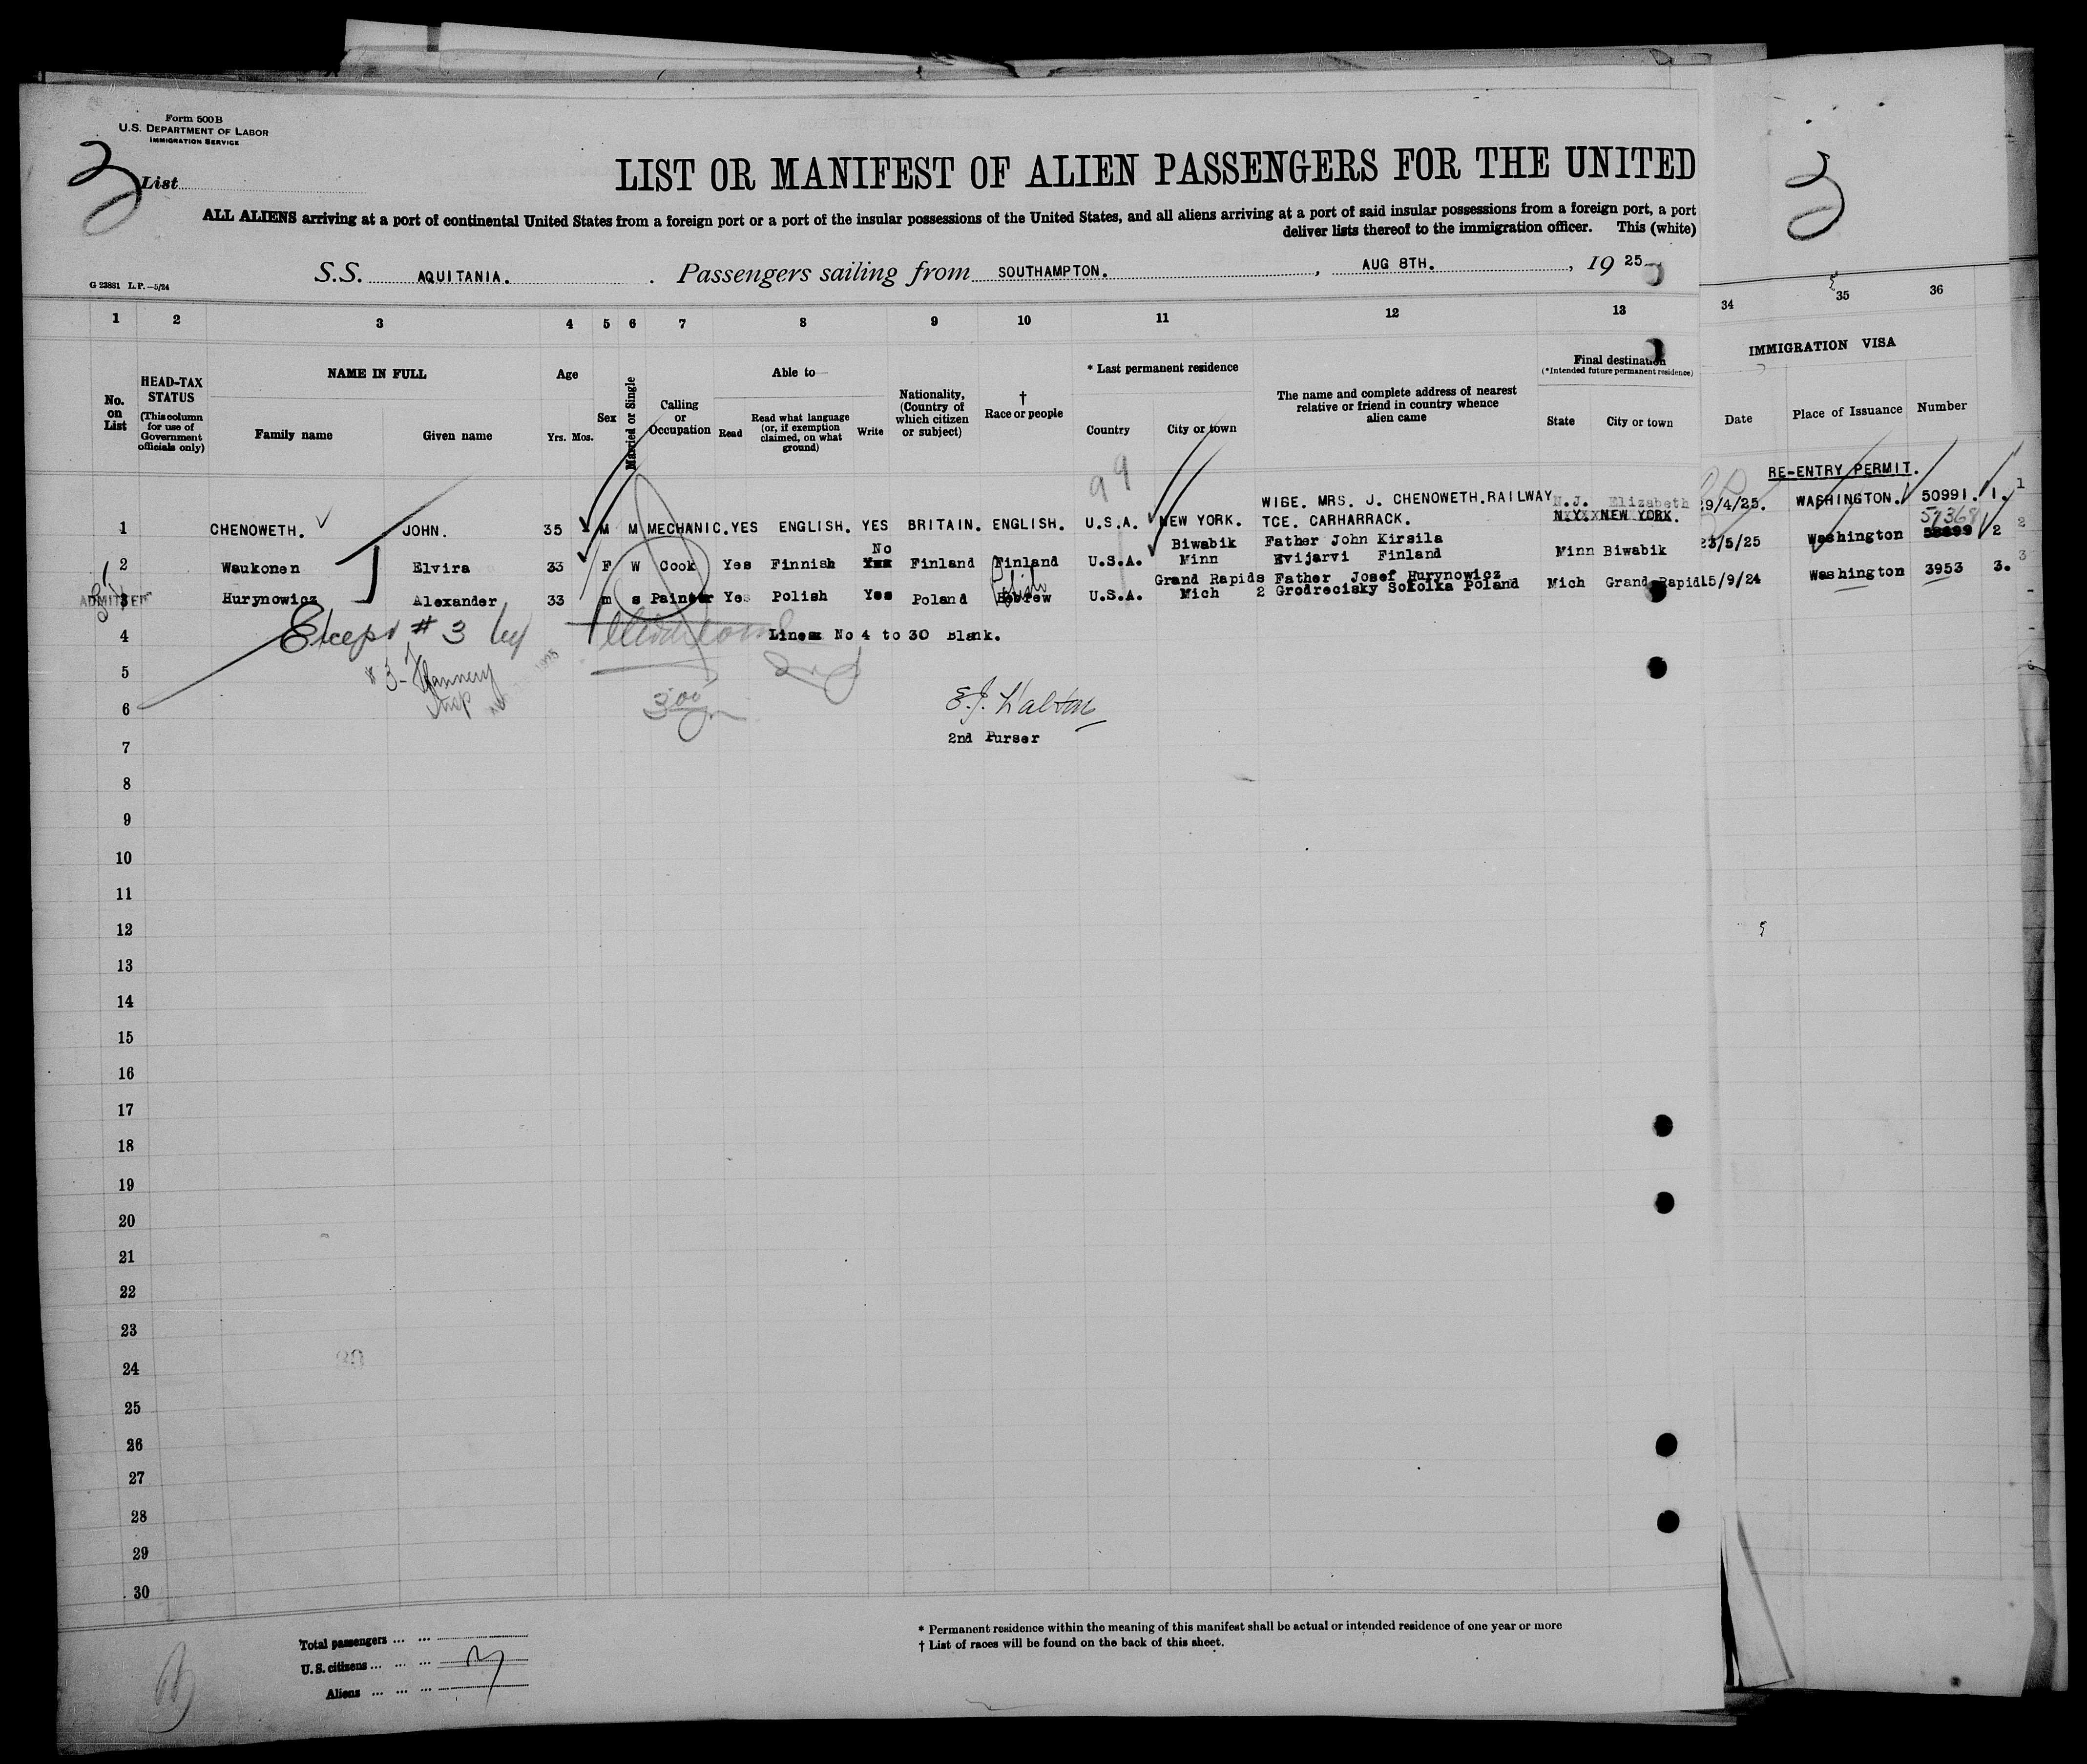 Form 500B
U.S. DEPARTMENT OF LABOR
IMMIGRATION SERVICE
3
List
LIST OR MANIFEST OF ALIEN PASSENGERS FOR THE UNITED
3
ALL ALIENS arriving at a port of continental United States from a foreign port or a port of the insular possessions of the United States, and all aliens arriving at a port of said insular possessions from a foreign port, a port
deliver lists thereof to the immigration officer. This (white)
S.S. AQUITANIA. Passengers sailing from SOUTHAMPTON. , AUG 8TH. , 19 25
G 23881 L.P.—5/24
1 2 3 4 5 6 7 8 9 10 11 12 13 34 35 36
No. on List
HEAD-TAX STATUS
(This column for use of Government officials only)
NAME IN FULL
Family name Given name
Age
Yrs. Mos.
Sex
Married or Single
Calling or Occupation
Able to—
Read
Read what language (or, if exemption claimed, on what ground)
Write
Nationality, (Country of which citizen or subject)
† Race or people
* Last permanent residence
Country City or town
The name and complete address of nearest relative or friend in country whence alien came
Final destination
(*Intended future permanent residence)
State City or town
IMMIGRATION VISA
Date Place of Issuance Number
RE-ENTRY PERMIT.
99
WIBE. MRS. J. CHENOWETH.RAILWAY N.J. Elizabeth
1 CHENOWETH. JOHN. 35 M M MECHANIC. YES ENGLISH. YES BRITAIN. ENGLISH. U.S.A. NEW YORK. TCE. CARHARRACK. N.Y. NEW YORK. 29/4/25. WASHINGTON. 50991. 1. 1
No Biwabik Father John Kirsila
2 Waukonen Elvira 33 F W Cook Yes Finnish Yes Finland Finland U.S.A. Minn Evijarvi Finland Minn Biwabik 23/5/25 Washington 2 2
Polish Grand Rapids Father Josef Hurynowicz
3 Hurynowicz Alexander 33 m s Painter Yes Polish Yes Poland Hebrew U.S.A. Mich 2 Grodrecisky Sokolka Poland Mich Grand Rapids 15/9/24 Washington 3953 3. 3
ADMITTED
Except # 3
4 Lines No 4 to 30 Blank.
5
# 3 - Flannery
Insp
2nd
6
300
E.J. Walton
7 2nd Purser
8
9
10
11
12
13
14
15
16
17
18
19
20
21
22
23
24
25
26
27
28
29
30
Total passengers ... ...
U.S. citizens ... ... ...
Aliens ... ... ...
3
* Permanent residence within the meaning of this manifest shall be actual or intended residence of one year or more
† List of races will be found on the back of this sheet.